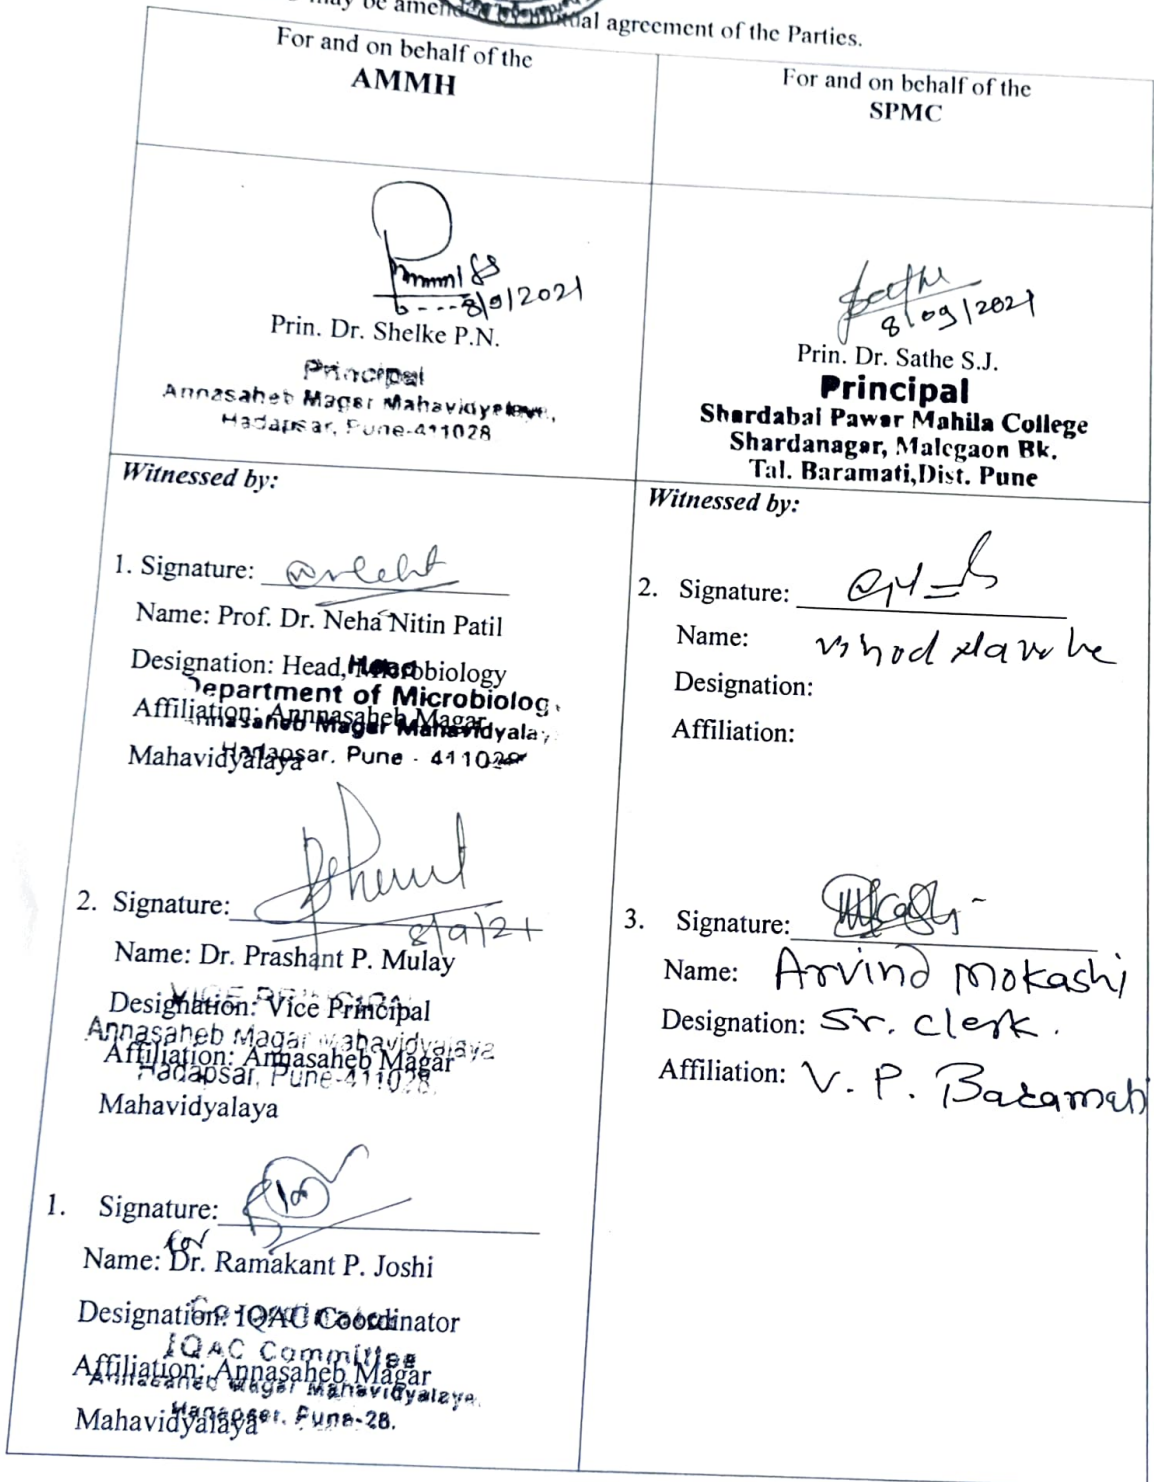 may be amended by mutual agreement of the Parties.
For and on behalf of the
AMMH
8/9/2021
Prin. Dr. Shelke P.N.
Principal
Annasaheb Magar Mahavidyalaya,
Hadapsar, Pune-411028
Witnessed by:
1. Signature:
Name: Prof. Dr. Neha Nitin Patil
Designation: Head, Microbiology
Head
Department of Microbiolog
Affiliation: Annnasaheb Magar
Annasaheb Magar Mahavidyalay
Mahavidyalaya
Hadapsar, Pune - 411028
2. Signature:
8/9/21
Name: Dr. Prashant P. Mulay
Designation: Vice Principal
VICE PRINCIPAL
Annasaheb Magar Mahavidyalaya
Affiliation: Annasaheb Magar
Hadapsar, Pune-411028.
Mahavidyalaya
1. Signature:
for
Name: Dr. Ramakant P. Joshi
Designation: IQAC Coordinator
IQAC Committee
Affiliation: Annasaheb Magar
Annasaheb Magar Mahavidyalaya
Mahavidyalaya
Hadapsar, Pune-28.
For and on behalf of the
SPMC
Sathe
8/09/2021
Prin. Dr. Sathe S.J.
Principal
Shardabai Pawar Mahila College
Shardanagar, Malegaon Bk.
Tal. Baramati,Dist. Pune
Witnessed by:
2. Signature:
Name:
Designation:
Affiliation:
3. Signature:
Name: Arvind Mokashi
Designation: Sr. Clerk.
Affiliation: V. P. Baramati